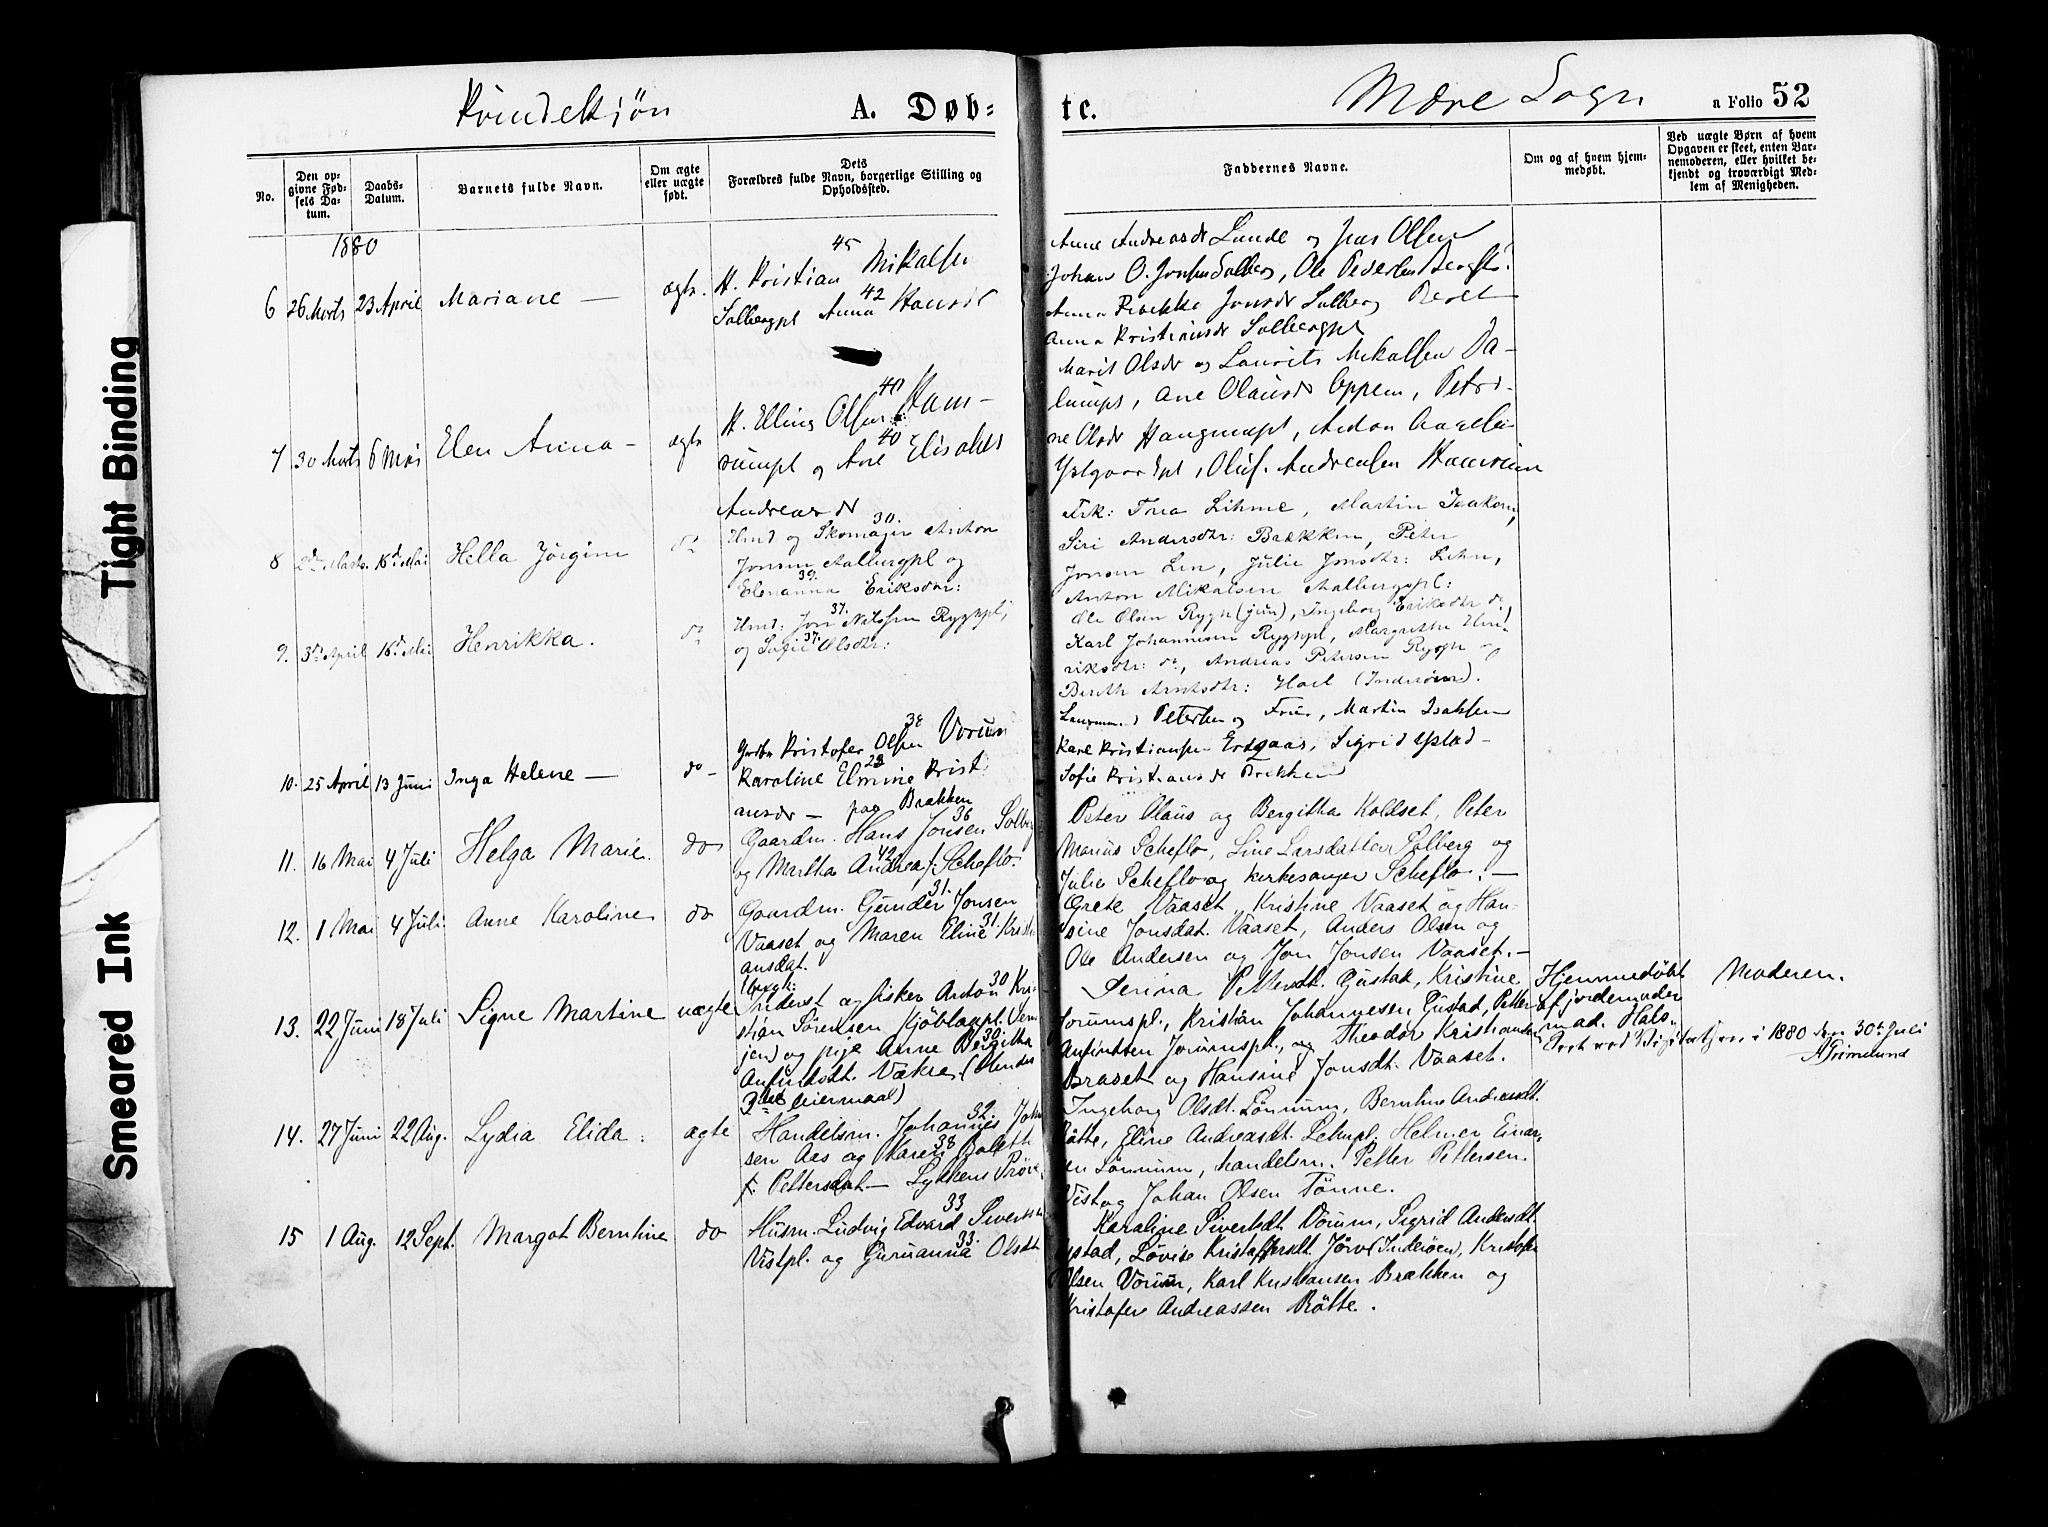 Kvindekjøn A. Døb=
tc. Mære Sogn a Folio 52
No.
Den op-
givne Fød-
sels Da-
tum.
Daabs-
Datum.
Barnets fulde Navn.
Om ægte
eller uægte
født.
Dets
Forældres fulde Navn, borgerlige Stilling og
Opholdssted.
Faddernes Navne.
Om og af hvem hjem-
medøbt.
Ved uægte Børn af hvem
Opgaven er skeet, enten Bar-
nemoderen, eller hvilket be-
kjendt og troværdigt Med-
lem af Menigheden.
1880
6 26 Marts 23 April Mariane — ægte.
H. Kristian 45 Mikalsen
Solbergpl Anna 42 Hansdt
Anne Andreasdt Lunde og Jens Olsen
Johan O. Solberg, Ole Pedersen
Anna Rebekka Jonsdt Solberg Beret
Anna Kristiansdt Solbergpl
7 30 Marts 6 Mai Elen Anna — ægte
H. Elling Olsen 40 Ham-
remspl og Ane 40 Elisabet
Andreasdt
Marit Olsdt og Laurits Mikalsen Da-
lemspl, Ane Olausdt Oppem, Petri-
ne Olsdt Haugumspl, Anton
Ystgaardspl, Oluf Andreasen Hamrem
8 2den Marts. 16de Mai Hilla Jørgine do
Hmd og Skomager 30. Anton
Jonsen Aalbergpl og
Elenanna 39. Eriksdtr:
Frk: Thea Lihme, Martin Isaksen,
Siri Andersdtr: Brækken, Peter
Jonsen Lein, Julie Jonsdtr: Lein,
Anton Mikalsen Aalbergspl:
9. 3de April 16de Mai Henrikka. do
Hmd: Jon 37. Nilssen Ryggpl,
og Sofie 37. Olsdtr:
Ole Olsen Rygg (jun), Ingeborg Eriksdtr do,
Karl Johannesen Ryggpl, Margrethe Hen-
riksdtr: do, Andreas Petersen Rygg og
Berith Arntsdtr: Hoel (Inderøen).
10. 25 April 13 Juni Inga Helene — do —
Kristofer Olsen 38 Vorum
Karoline Elmine 23 Krist-
ansdr — paa Brækken
Petersen og Frue, Martin Isaksen
Karl Kristiansen Ertgaas, Sigrid Ystad —
Sofie Kristiansdt Brækken
11. 16 Mai 4 Juli Helga Marie. do
Gaardm. Hans Jonsen 36 Solberg
og Martha Andrea 42 f. Scheflo.
Peter Olaus og Bergitha Koldset, Peter
Marius Scheflo, Line Larsdatter Solberg og
Julie Scheflo og kirkesanger Scheflo. —
12. 1 Mai 4 Juli. Anne Karoline do
Gaardm. Gunder 31. Jonsen
Vaaset og Maren Eline 31. Kristi-
ansdat.
Grete Vaaset, Kristine Vaaset og Han-
sine Jonsdat. Vaaset, Anders Olsen og
Ole Andersen og Jon Jonsen Vaaset. —
13. 22 Juni 18 Juli Signe Martine uægte
Inderst og fisker Anton 30 Kri-
stian Sørensen Kjöblanpl. Vem-
jen) og pige Anne Bergitha 30
Anfindsdt. Vækre.
2det leiermaal)
Serina Pettersdt. Gustad, Kristine
Jorumspl., Kristian Johannesen Gustad, Petter
Anfindsen Jorumspl., og Theodor Kristiansen
Braset og Hansine Jonsdt. Vaaset.
Hjemmedøbt
af jordemoder
mad. Hals.
Moderen.
i 1880 den 30te Juli
AGrimelund
14. 27 Juni 22 Aug. Lydia Elida. ægte
Handelsm. Johannes 32. Johan-
sen Aes og Karen 38 Bolette
f. Pettersdat — Lykkens Prøve.
Ingeborg Olsdt. Lönnum, Berntine Andreasdt.
Røtte, Eline Andreasdt. Leinpl. Helmer Einar-
sen Lönnum, handelsm. Petter Pettersen.
Vist og Johan Olsen Tønne.
15 1 Aug. 12 Sept. Margot Berntine do
Husm. Ludvig Edvard 33 Sivertsen
Vistpl. og Guruanna 33. Olsdt
Karoline Sivertsdt. Vorum, Sigrid Andersdt.
Ystad, Lovise Kristoffersdt. Jørv (Inderøen), Kristofer
Olsen Vorum, Karl Kristiansen Brækken og
Kristofer Andreassen Røtte.
Tight Binding
Smeared Ink